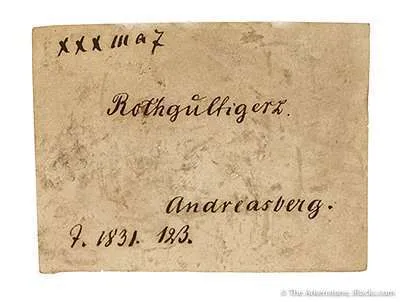 xxx III a 7
Rothgültigerz.
Andreasberg.
J. 1831. 123.
© The Arkenstone, iRocks.com